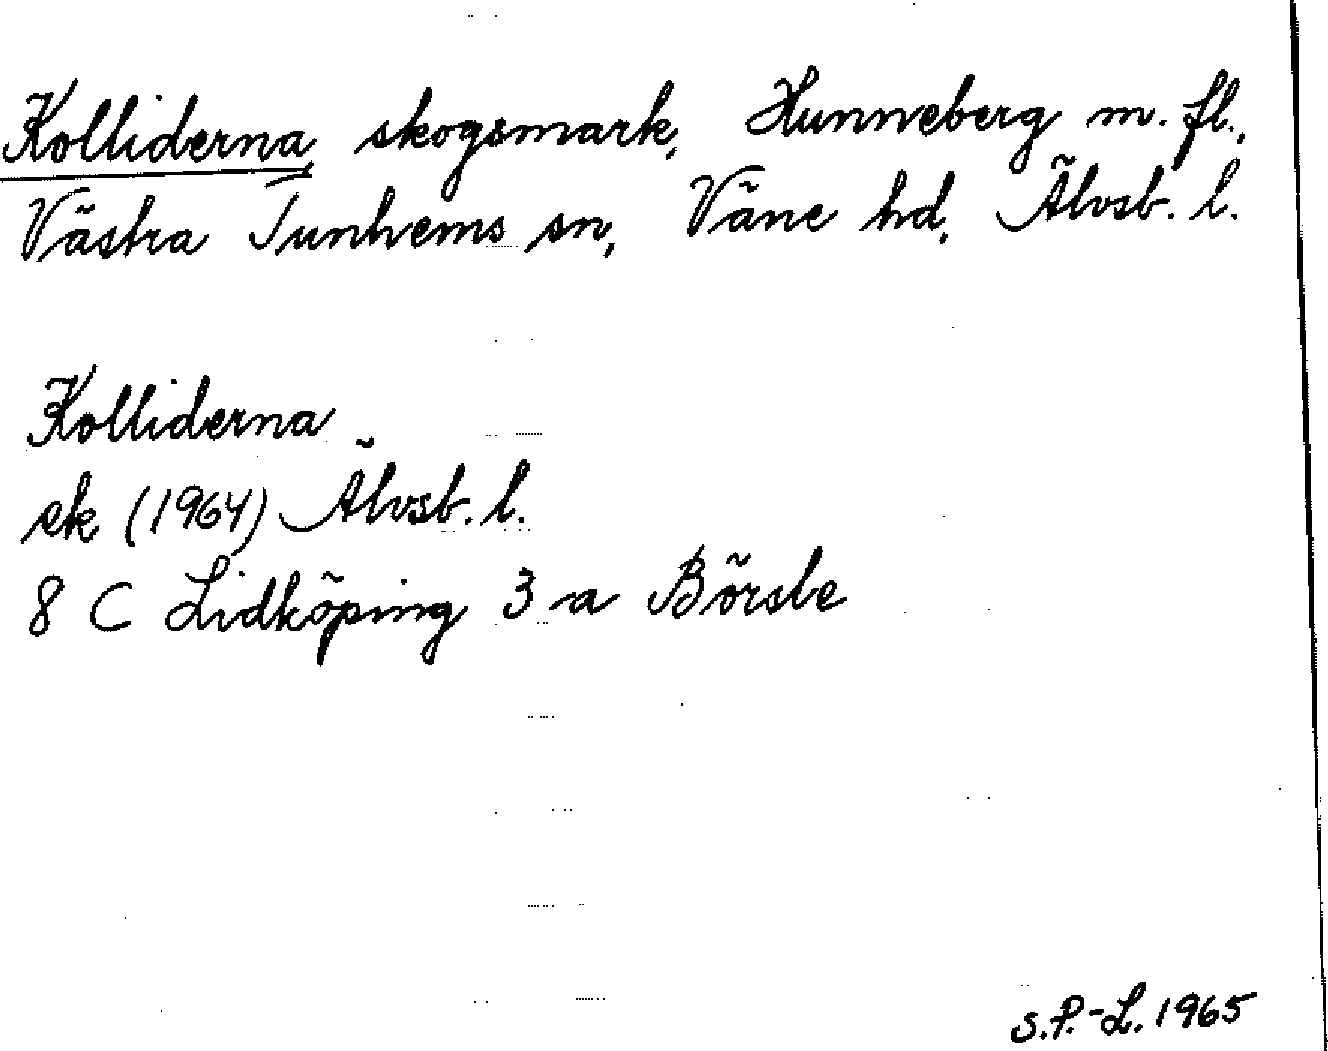 Kolliderna, skogsmark, Hunneberg m. fl.,
Västra Tunhems sn, Väne hd, Älvsb. l.
Kolliderna
ek (1964) Älvsb. l.
8 C Lidköping 3 a Börsle
S.P.-L. 1965